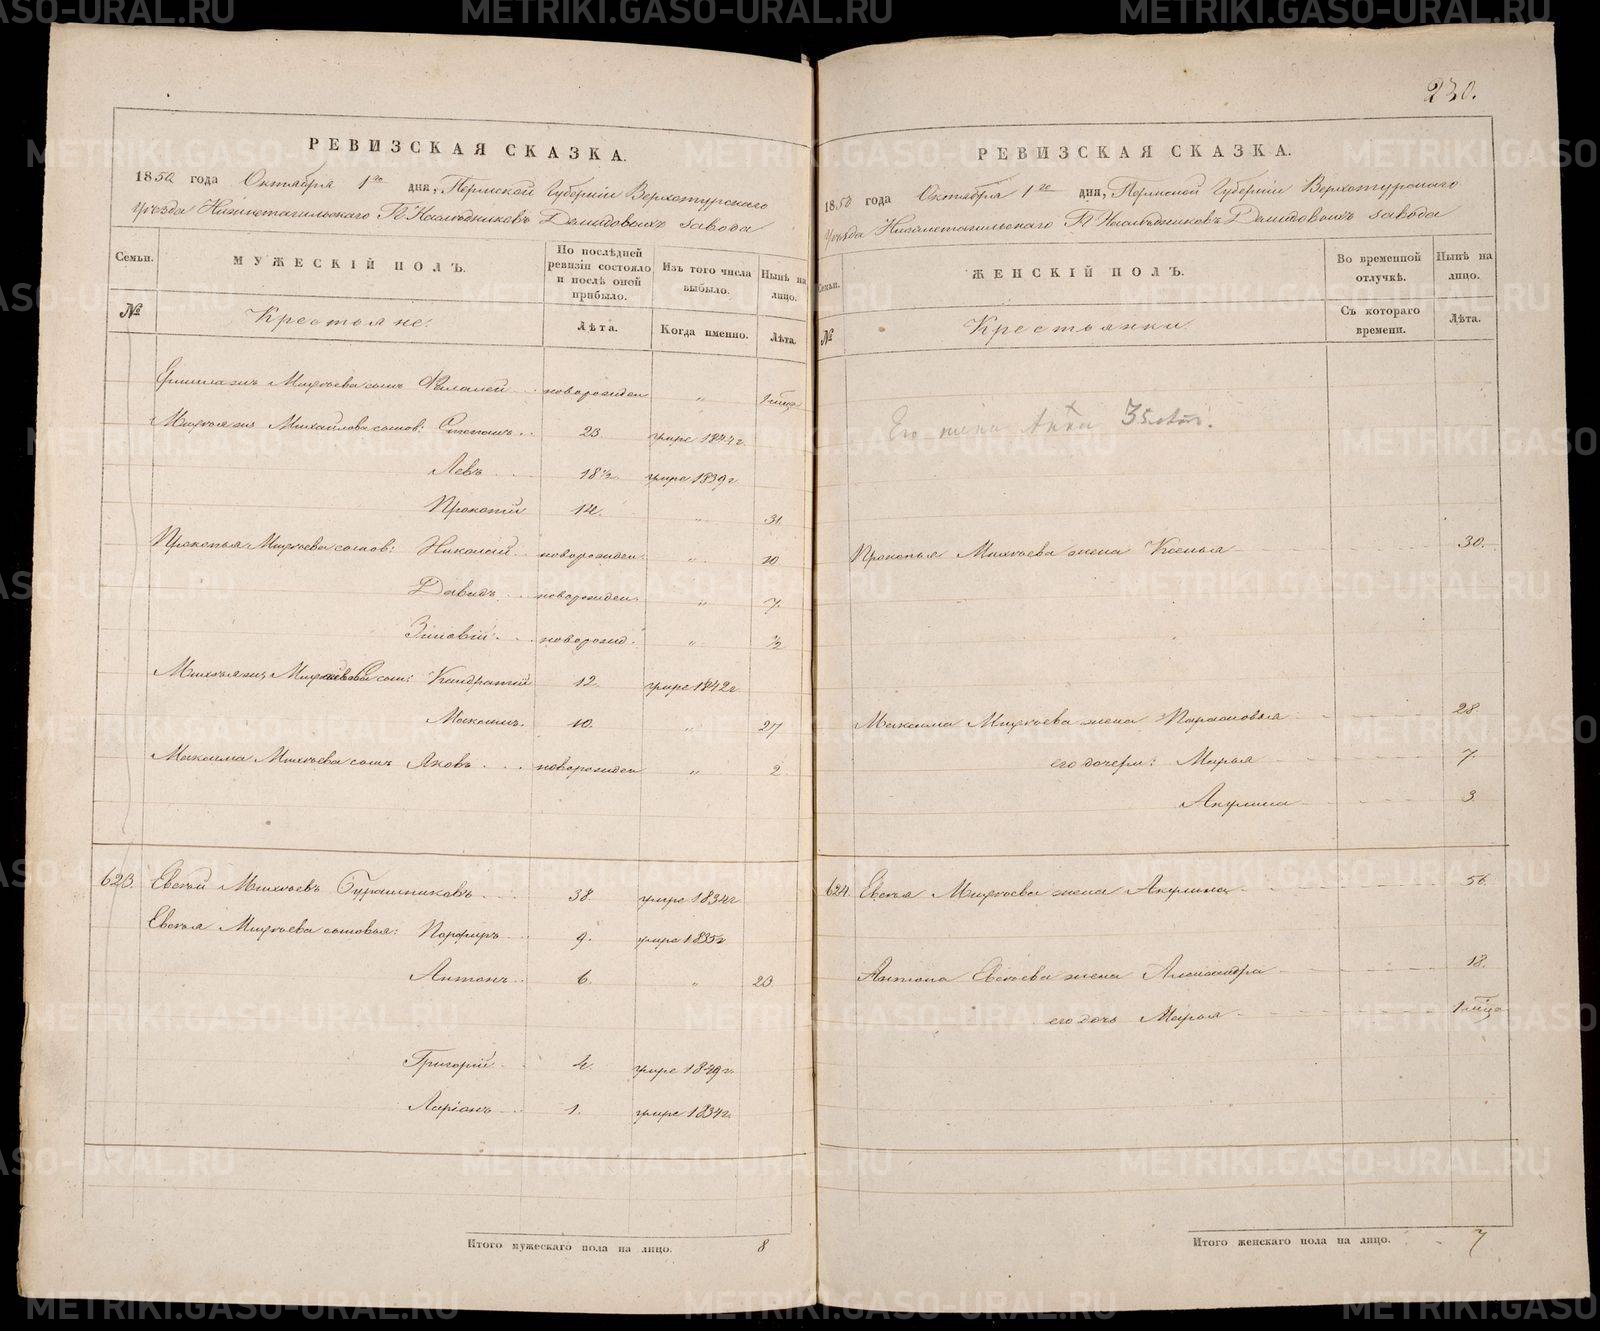 230.
РЕВИЗСКАЯ СКАЗКА.
1850 года Октября 1го дня, Пермской Губерніи Верхотурскаго
Уѣзда Нижнетагильскаго Гг Наслѣдниковъ Демидовыхъ завода
Семьи.
МУЖЕСКІЙ ПОЛЪ.
По послѣдней ревизіи состояло и послѣ оной прибыло.
Изъ того числа выбыло.
Нынѣ на лицо.
№
Крестьяне.
Лѣта.
Когда именно.
Лѣта.
Михѣева сынъ новорожден „ 1 мѣца
Михайлова сынов: Степанъ 23. умре 1844 г
Левъ 18½ умре 1839 г
Прокопій 14. „ 31
Прокопья Михѣева сынов: Николай новорожден „ 10
Давидъ новорожден „ 7.
Зиновій новорожд. „ ½
Кандратій 12. умре 1842 г
Максимъ 10. „ 27
Максима Михѣева сынъ Яковъ новорожден „ 2
623. Евсѣй Михѣевъ 38. умре 1834 г
Евсѣя Михѣева сыновья: Порфиръ 9. умре 1835 г
Антонъ 6. „ 23
Григорій 4. умре 1839 г
Ларіонъ 1. умре 1834 г
Итого мужескаго пола на лицо. 8
РЕВИЗСКАЯ СКАЗКА.
1850 года Октября 1го дня, Пермской Губерніи Верхотурскаго
Уѣзда Нижнетагильскаго Гг Наслѣдниковъ Демидовыхъ завода
Семьи.
ЖЕНСКІЙ ПОЛЪ.
Во временной отлучкѣ.
Нынѣ на лицо.
№
Крестьянки.
Съ котораго времени.
Лѣта.
Его жена Анна
Прокопья Михѣева жена Ксенья 30.
Максима Михѣева жена Парасковья 28
его дочери: Марья 7.
Акулина 3
624. Евсѣя Михѣева жена Акулина 56
Антона Евсѣева жена Александра 18.
его дочь Марья 1 мѣца
Итого женскаго пола на лицо. 7
METRIKI.GASO-URAL.RU